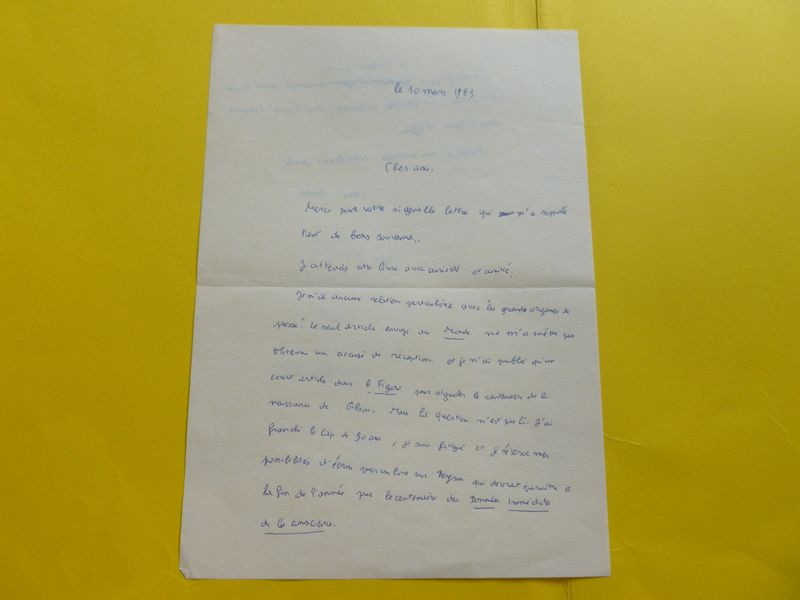 le 10 mars 1989
Cher ami,
Merci pour votre si gentille lettre qui m'a rappelé
tant de bons souvenirs..
J'attends votre livre avec curiosité et amitié.
Je n'ai aucune relation particulière avec les grands organes de
presse. Le seul article envoyé au Monde ne m'a même pas
obtenu un accusé de réception et je n'ai publié qu'un
court article dans le Figaro pour signaler le centenaire de la
naissance de Gilson. Mais la question n'est pas là. J'ai
franchi le cap de 90 ans, je suis fatigué et je réserve mes
possibilités d'écrire pour un livre sur Bergson qui devrait paraître à
la fin de l'année pour le centenaire des Données Immédiates
de la conscience.